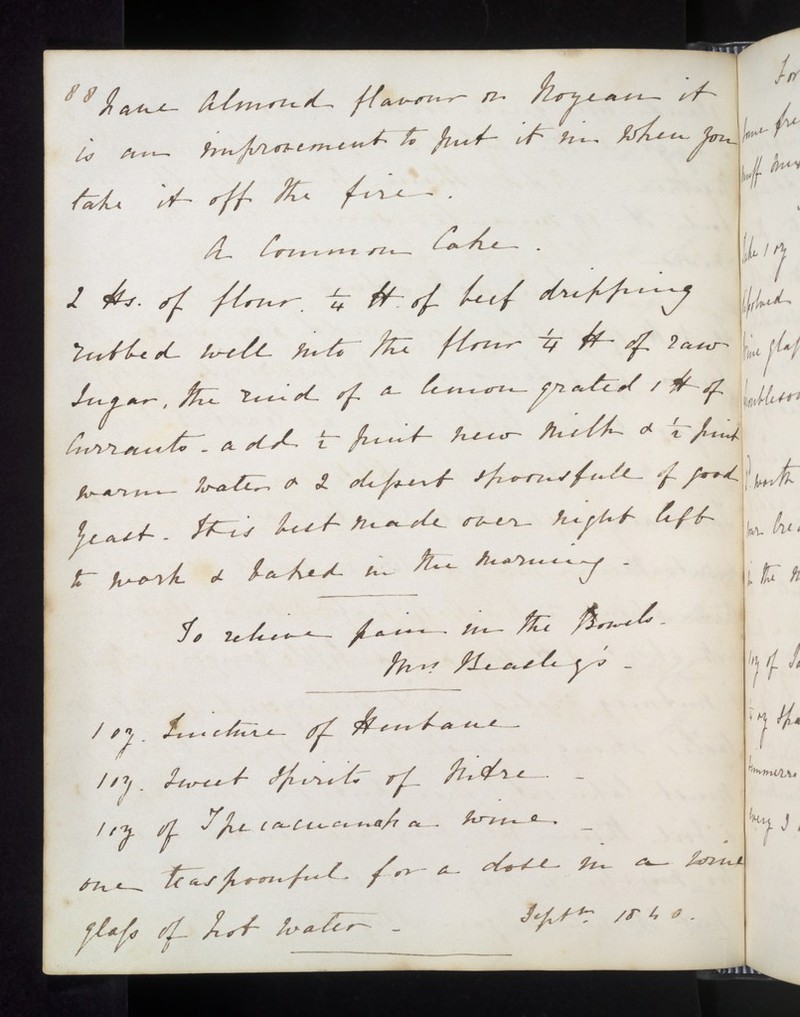 88 have Almond flavour or Noyeau it
is an improvement to put it in when you
take it off the fire.
A Common Cake.
2 lbs. of flour. ¼ lb. of beef dripping
rubbed well into the flour ¼ lb of raw
Sugar, the rind of a lemon grated 1 lb of
Currants - add ½ pint new Milk & ½ pint
warm water & 2 desert spoonsfull of good
Yeast - It is best made over night left
to work & baked in the morning -
To relieve pain in the Bowels -
Mrs Beasley's -
1 oz. Tincture of Henbane
1 oz. Sweet Spirits of Nitre -
1 oz of Ipecacuanha wine -
one teaspoonful for a dose in a wine
glass of hot water -
Septr. 1840.